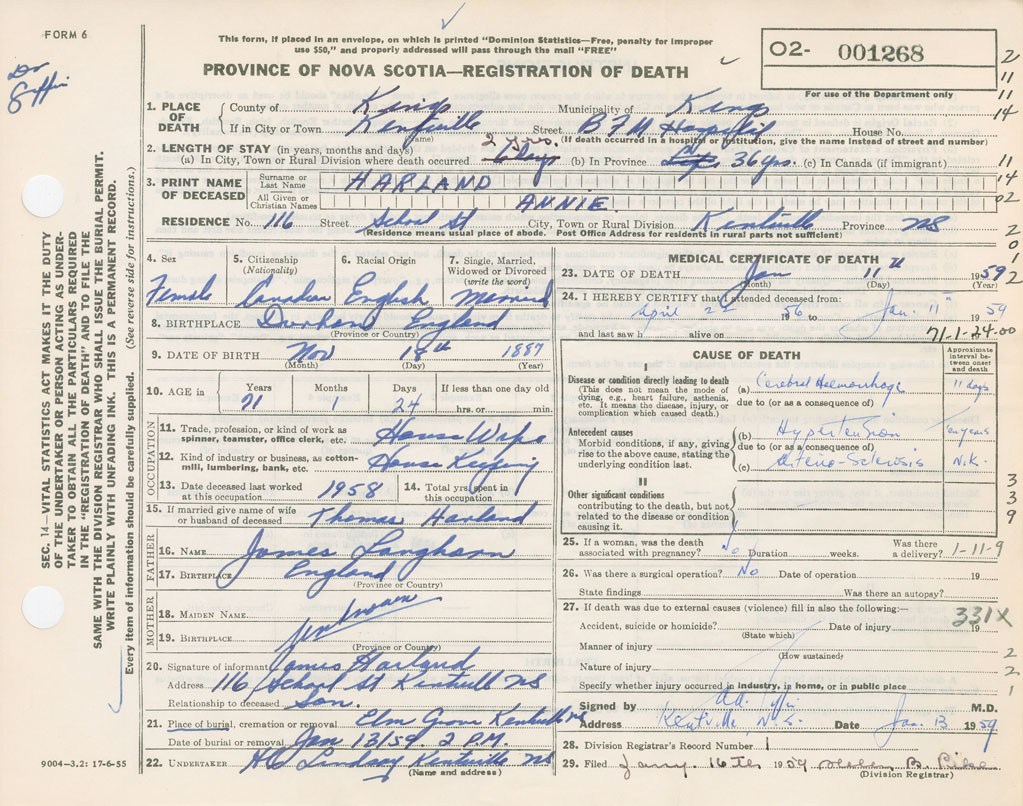 FORM 6
This form, if placed in an envelope, on which is printed "Dominion Statistics—Free, penalty for improper
use $50," and properly addressed will pass through the mail "FREE"
PROVINCE OF NOVA SCOTIA—REGISTRATION OF DEATH
02- 001268
For use of the Department only
Dr
Giffin
2
11
14
11
14
02
2
0
1
2
SEC. 14—VITAL STATISTICS ACT MAKES IT THE DUTY
OF THE UNDERTAKER OR PERSON ACTING AS UNDER-
TAKER TO OBTAIN ALL THE PARTICULARS REQUIRED
IN THE "REGISTRATION OF DEATH" AND TO FILE THE
SAME WITH THE DIVISION REGISTRAR WHO SHALL ISSUE THE BURIAL PERMIT.
WRITE PLAINLY WITH UNFADING INK. THIS IS A PERMANENT RECORD.
Every item of information should be carefully supplied. (See reverse side for instructions.)
1. PLACE OF DEATH County of Kings Municipality of Kings
If in City or Town Kentville Street B F M Hospital House No.
(Name) (If death occurred in a hospital or institution, give the name instead of street and number)
2. LENGTH OF STAY (in years, months and days) 2 yrs.
(a) In City, Town or Rural Division where death occurred 6 days (b) In Province 36 yrs. (c) In Canada (if immigrant)
3. PRINT NAME OF DECEASED Surname or Last Name HARLAND
All Given or Christian Names ANNIE
RESIDENCE No. 116 Street School St City, Town or Rural Division Kentville Province NS
(Residence means usual place of abode. Post Office Address for residents in rural parts not sufficient)
4. Sex Female
5. Citizenship (Nationality) Canadian
6. Racial Origin English
7. Single, Married, Widowed or Divorced (write the word) Married
8. BIRTHPLACE Durham England
(Province or Country)
9. DATE OF BIRTH Nov 18th 1887
(Month) (Day) (Year)
10. AGE in Years Months Days If less than one day old
71 1 24 hrs. or min.
OCCUPATION
11. Trade, profession, or kind of work as spinner, teamster, office clerk, etc. House Wife
12. Kind of industry or business, as cotton-mill, lumbering, bank, etc. House Keeping
13. Date deceased last worked at this occupation 1958 14. Total yrs. spent in this occupation
15. If married give name of wife or husband of deceased Thomas Harland
FATHER
16. NAME James Langhorn
17. BIRTHPLACE England
(Province or Country)
MOTHER
18. MAIDEN NAME
unknown
19. BIRTHPLACE
(Province or Country)
20. Signature of informant James Harland
Address 116 School St Kentville NS
Relationship to deceased Son.
21. Place of burial, cremation or removal Elm Grove Kentville NS
Date of burial or removal Jan 13/59. 2 P.M.
22. UNDERTAKER H C Lindsay Kentville NS
(Name and address)
9004—3.2: 17-6-55
MEDICAL CERTIFICATE OF DEATH
23. DATE OF DEATH Jan 11th 1959
(Month) (Day) (Year)
24. I HEREBY CERTIFY that I attended deceased from:
April 2nd 1956 to Jan. 11th 1959
and last saw h alive on 71-1-24-00
CAUSE OF DEATH
Approximate interval between onset and death
I
Disease or condition directly leading to death
(This does not mean the mode of dying, e.g., heart failure, asthenia, etc. It means the disease, injury, or complication which caused death.)
(a) Cerebral Haemorrhage 11 days
due to (or as a consequence of)
Antecedent causes
Morbid conditions, if any, giving rise to the above cause, stating the underlying condition last.
(b) Hypertension years
due to (or as a consequence of)
(c) Arterio-Sclerosis N.K.
II
Other significant conditions
contributing to the death, but not related to the disease or condition causing it.
3
3
9
25. If a woman, was the death associated with pregnancy? No Duration weeks. Was there a delivery? 1-11-9
26. Was there a surgical operation? No Date of operation 19
State findings Was there an autopsy?
27. If death was due to external causes (violence) fill in also the following:—
331X
Accident, suicide or homicide? Date of injury 19
(State which)
Manner of injury 2
(How sustained)
Nature of injury 2
Specify whether injury occurred in industry, in home, or in public place 1
Signed by M.D.
Address Kentville, N.S. Date Jan. 13 1959
28. Division Registrar's Record Number 1
29. Filed Jany. 16th 1959 Helen B.
(Division Registrar)